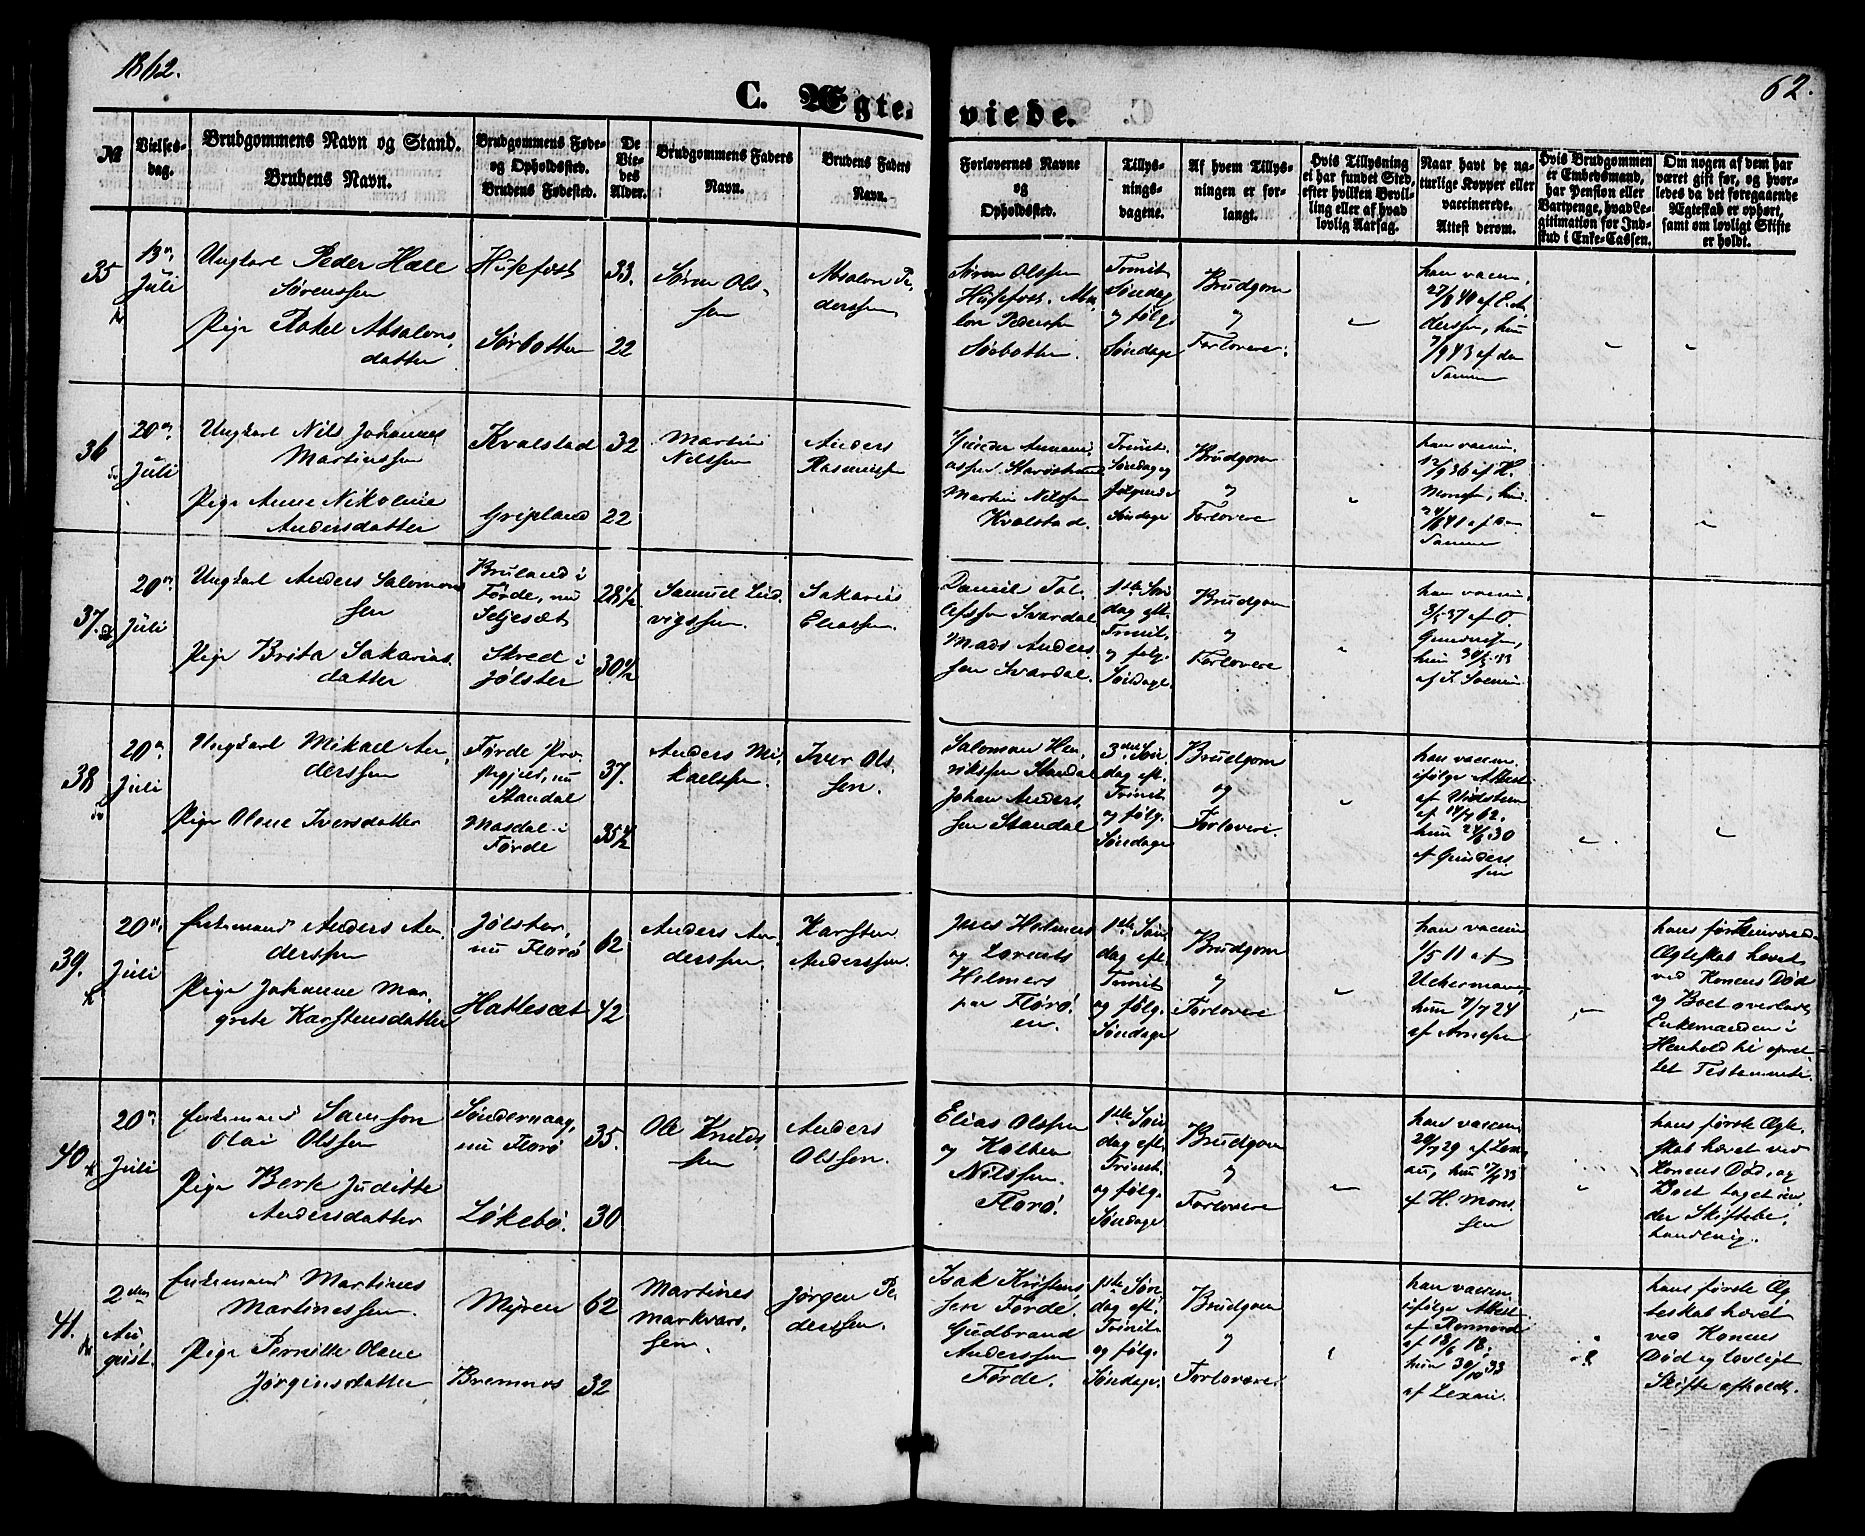 1862.
62.
C. Ægteviede.
№
Vielses-
dag.
Brudgommens Navn og Stand.
Brudens Navn.
Brudgommens Føde-
og Opholdssted.
Brudens Fødested.
De
Vie-
des
Alder.
Brudgommens Faders
Navn.
Brudens Faders
Navn.
Forlovernes Navne
og
Opholdssted.
Tillys-
nings-
dagene.
Af hvem Tillys-
ningen er for-
langt.
Hvis Tillysning
ei har fundet Sted,
efter hvilken Bevil-
ling eller af hvad
lovlig Aarsag.
Naar havt de na-
turlige Kopper eller
vaccinerede.
Attest derom.
Hvis Brudgommen
er Embedsmand,
har Pension eller
Vartpenge, hvad Le-
gitimation for Ind-
skud i Enke-Cassen.
Om nogen af dem har
været gift før, og hvor-
ledes da det foregaaende
Ægteskab er ophørt,
samt om lovligt Skifte
er holdt.
35
13de
Juli
Ungkarl Peder
Sørenssen
Pige Rakel Absalons
datter
Husefost
Sørbotten
33.
22
Søren Ols
sen
Absalon Pe
derssen
Søren Olssen
Husefost. Absa
lon Pederssen
Sørbotten.
Trinit
Søndag
og følg.
Søndage
Brudgom
og
Forlovere.
han vaccin.
27/8 40 af
derssen, hun
7/9 43 af den
Samme
36
20de
Juli
Ungkarl Nils Johannes
Martinssen
Pige Anne Nikoline
Andersdatter
Kvalstad
Gripland
32
22
Martin
Nilssen
Anders
Rasmussen
Martin Nilssen
Kvalstad.
Trinit.
Søndag og
følgende
Søndage
Brudgom
og
Forlovere
han vaccin.
12/9 36 af H.
Monssen, hun
af den
Samme
37.
20de
Juli
Ungkarl Anders Salomons
sen
Pige Brita Sakarias
datter
Bruland i
Førde, nu
Seljesæt
Skred i
Jølster
28½
30½
Samuel Lud
vigssen.
Sakarias
Eliassen.
Daniel Tol
lefssen Svardal
Mads Anders
sen Svardal.
1ste Søn
dag eft.
Trinit.
og følg.
Søndage.
Brudgom
og
Forlovere
han vaccin.
37 af O.
Gundersen,
hun 33
38
20de
Juli
Ungkarl Mikael An
derssen
Pige Oline Iversdatter
Førde Præ
stegjeld, nu
Standal
Mosdal i
Førde
37.
35½
Anders Mi
kaelssen.
Iver Ols
sen.
Salomon Hen
rikssen Standal
Johan Anders
sen Standal
3die Søn
dag eft.
Trinit
og følg.
Søndage
Brudgom
og
Forlovere.
han vaccin.
ifølge Attest
af Vidsteen
af 14/7 62.
hun 30
af Gunders
sen
39.
20de
Juli
Enkemand Anders An
derssen
Pige Johanne Mar
grete Karstensdatter
Jølster,
nu Florø
Hattesæt
62
42
Anders An
derssen.
Karsten
Anderssen.
Jens Helmers
og Lorents
Helmers
paa Florø
en.
1ste Søn
dag eft.
Trinit
og følg.
Søndage
Brudgom
og
Forlovere
han vaccin
1/5 11 af
Uckermann
hun 7/7 24
af Arnesen
hans
Ægteskab hævet
ved Konens Død
og Boet overladt
Enkemanden i
Henhold til opret
tet Testamente.
40
20de
Juli
Enkemand Samson
Olai Olssen
Pige Berte Juditte
Andersdatter
Søndernaag,
nu Florø
Løkebø.
35.
30
Ole Knuds
sen
Anders
Olssen.
Elias Olssen
og Holben
Nilssen.
Florø.
1ste Søn
dag eft.
Trinit.
og følg.
Søndage
Brudgom
og
Forlovere
han vaccin.
29 af Lex
au, hun 33
af H. Mons
sen
hans første Ægte
skab hævet ved
Konens Død, og
Boet taget un
der Skiftebe
handling.
41.
2den
Au
gust.
Enkemand Martines
Martinessen.
Pige Pernille Oline
Jørgensdatter
Myren
Bremnes
62
32
Martines
Markvars
sen.
Jørgen Pe
derssen.
Isak Kristens
sen Førde.
Gudbrand
Anderssen
Førde.
1ste Søn
dag eft.
Trinit.
og følg.
Søndage.
Brudgom
og
Forlovere.
han vaccin.
ifølge Attest
hun 30/10 33
af Lexau.
hans første Æg
teskab hævet
ved Konens
Død og lovligt
Skifte afholdt.